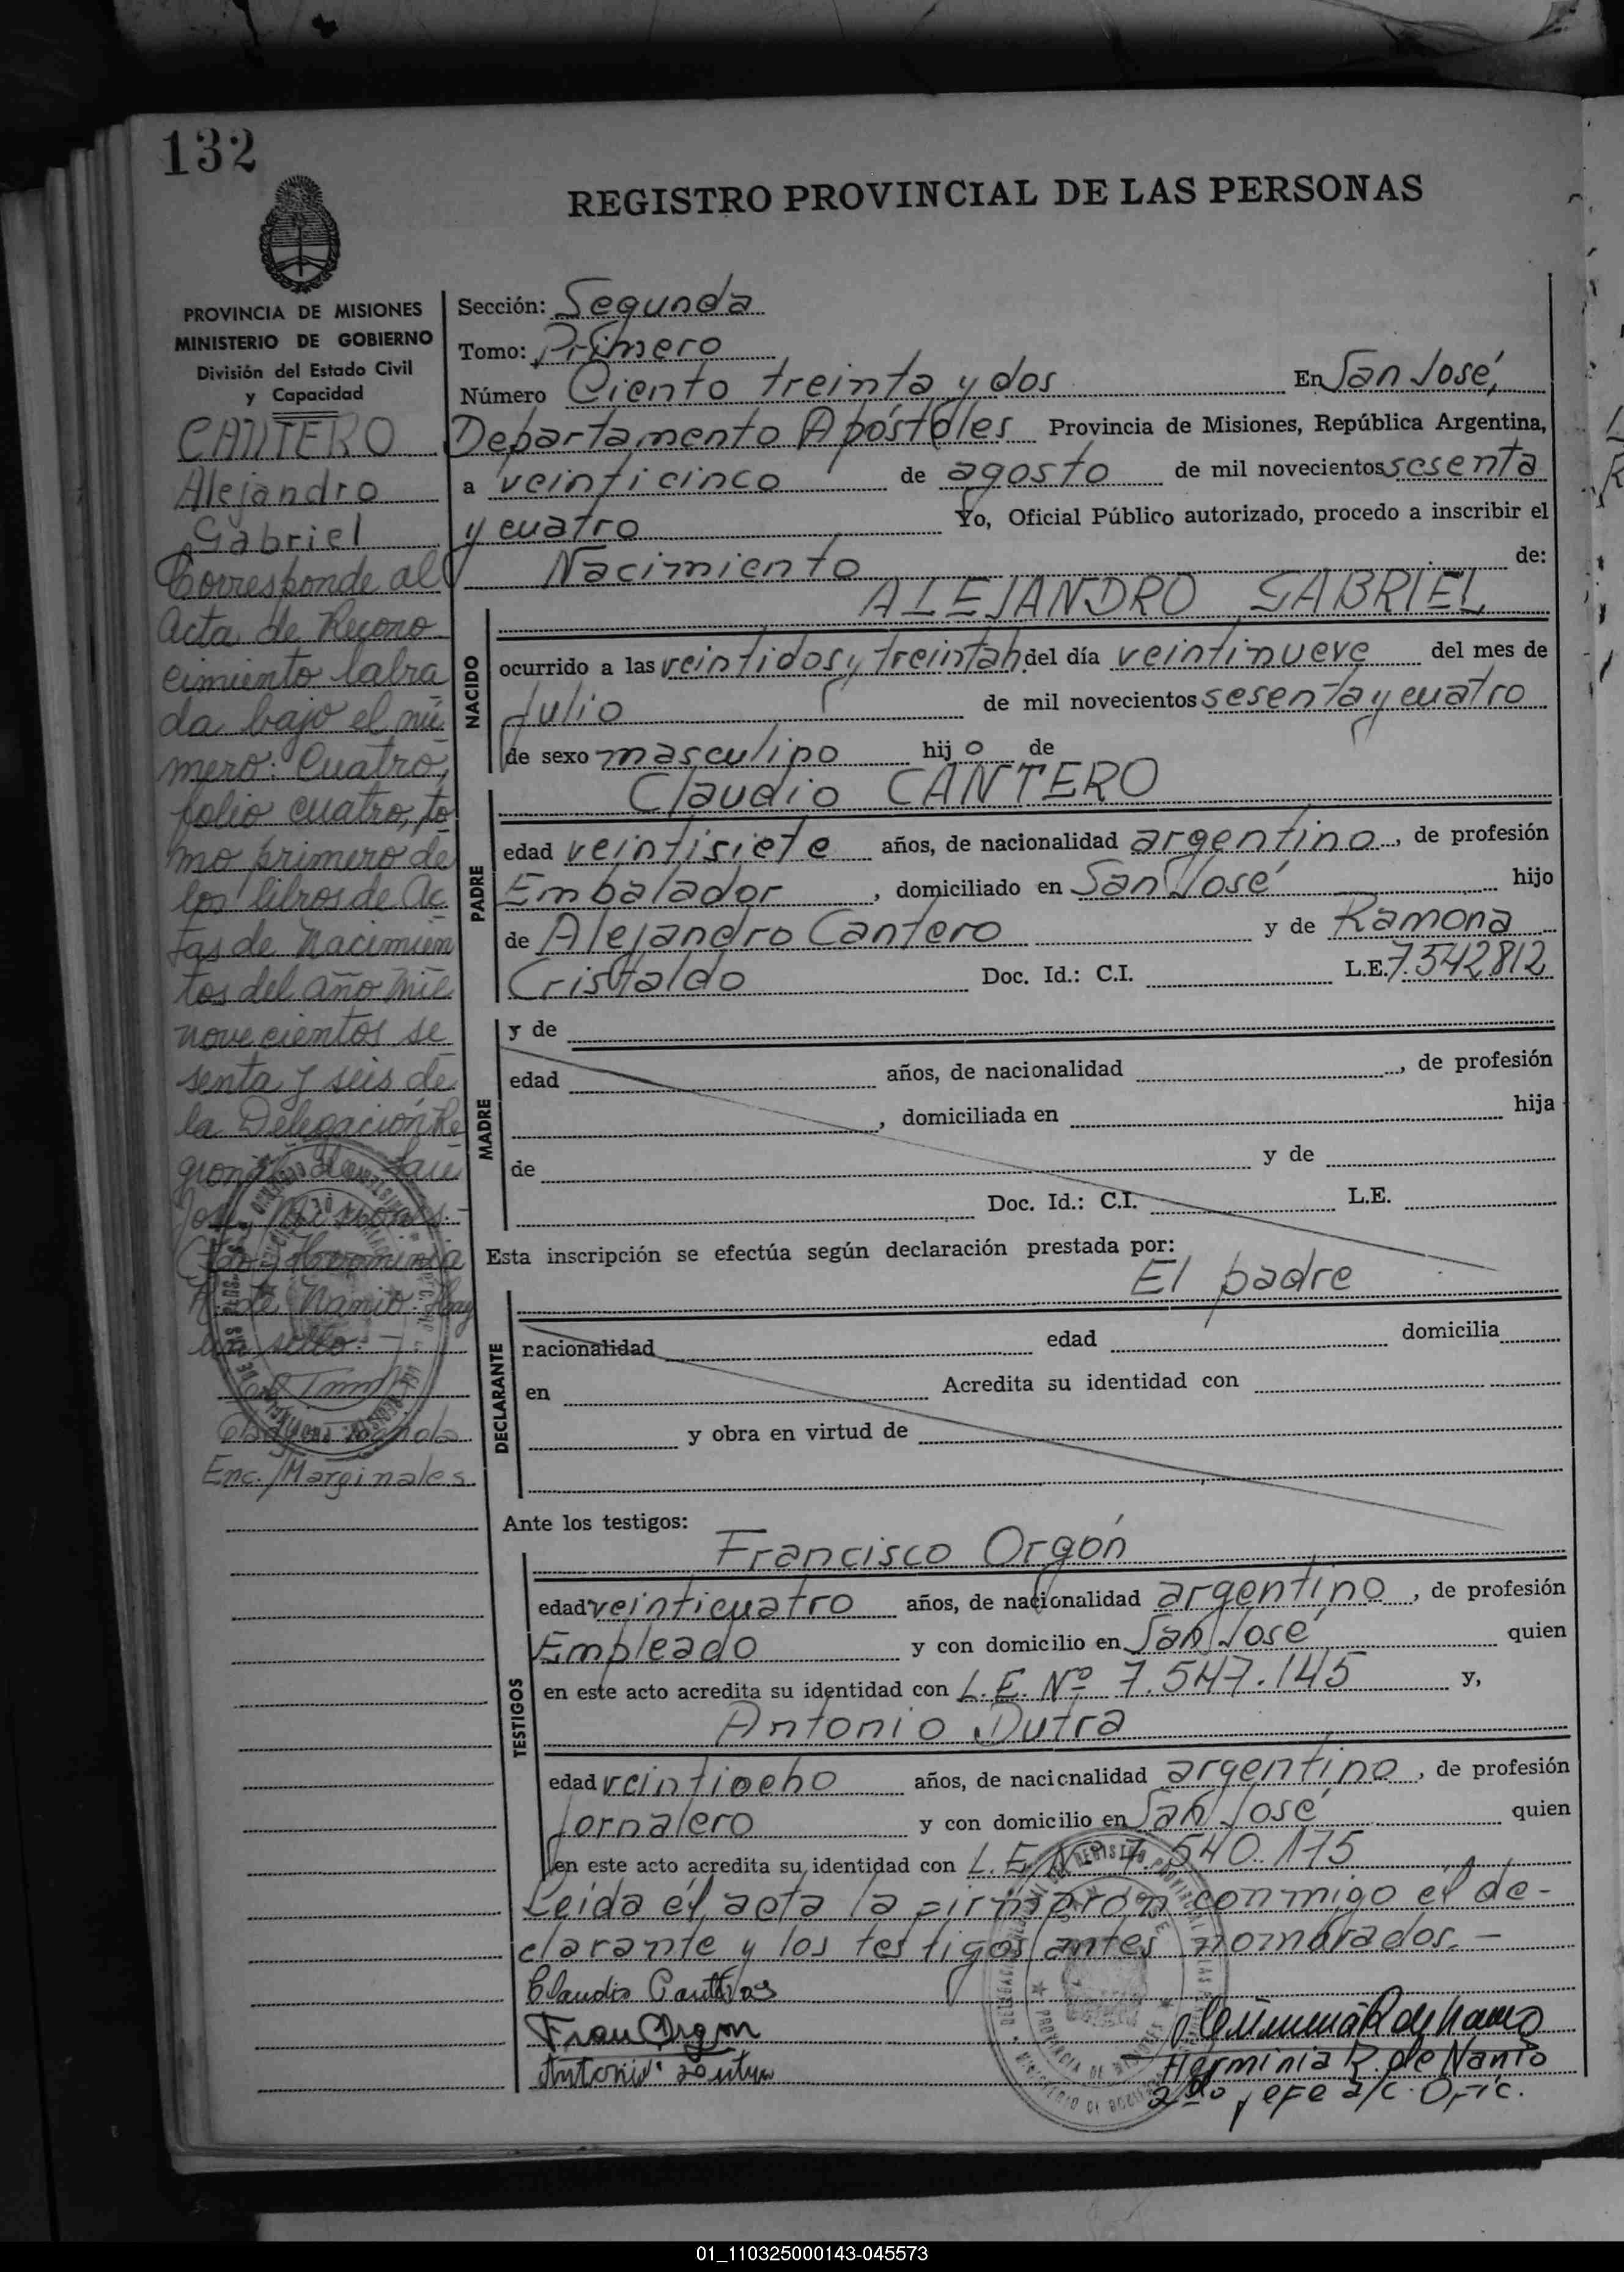 132
REGISTRO PROVINCIAL DE LAS PERSONAS
PROVINCIA DE MISIONES
MINISTERIO DE GOBIERNO
División del Estado Civil
y Capacidad
CANTERO
Alejandro
Gabriel
Corresponde al
Acta de Recono
cimiento labra
da bajo el nú
mero: Cuatro,
folio cuatro, to
mo primero de
los libros de Ac
tas de Nacimien
tos del año mil
novecientos se
senta y seis de
la Delegación Re
gional de San
José, Misiones.-
Herminia
R. de Nanio. Hay
un sello.-
Enc./Marginales
Sección: Segunda
Tomo: Primero
Número Ciento treinta y dos En San José,
Departamento Apóstoles Provincia de Misiones, República Argentina,
a veinticinco de agosto de mil novecientos sesenta
y cuatro Yo, Oficial Público autorizado, procedo a inscribir el
Nacimiento de:
ALEJANDRO GABRIEL
NACIDO
ocurrido a las veintidos y treinta h del día veintinueve del mes de
Julio de mil novecientos sesenta y cuatro
de sexo masculino hijo de
Claudio CANTERO
PADRE
edad veintisiete años, de nacionalidad argentino, de profesión
Embalador, domiciliado en San José hijo
de Alejandro Cantero y de Ramona
Cristaldo Doc. Id.: C.I. L.E. 7.542812
MADRE
y de
edad años, de nacionalidad , de profesión
, domiciliada en hija
de y de
Doc. Id.: C.I. L.E.
Esta inscripción se efectúa según declaración prestada por:
El padre
DECLARANTE
nacionalidad edad domicilia
en Acredita su identidad con
y obra en virtud de
Ante los testigos:
Francisco Orgón
TESTIGOS
edad veinticuatro años, de nacionalidad argentino, de profesión
Empleado y con domicilio en San José quien
en este acto acredita su identidad con L.E. Nº 7.547.145 y,
Antonio Dutra
edad veintiocho años, de nacionalidad argentino, de profesión
Jornalero y con domicilio en San José quien
en este acto acredita su identidad con L.E. Nº 7.540.175
Leída el acta la firmaron conmigo el de-
clarante y los testigos antes nombrados.-
Claudio
Fran Orgon
Antonio
Herminia R. de Nanio
2do jefe a/c. Ofic.
01_110325000143-045573